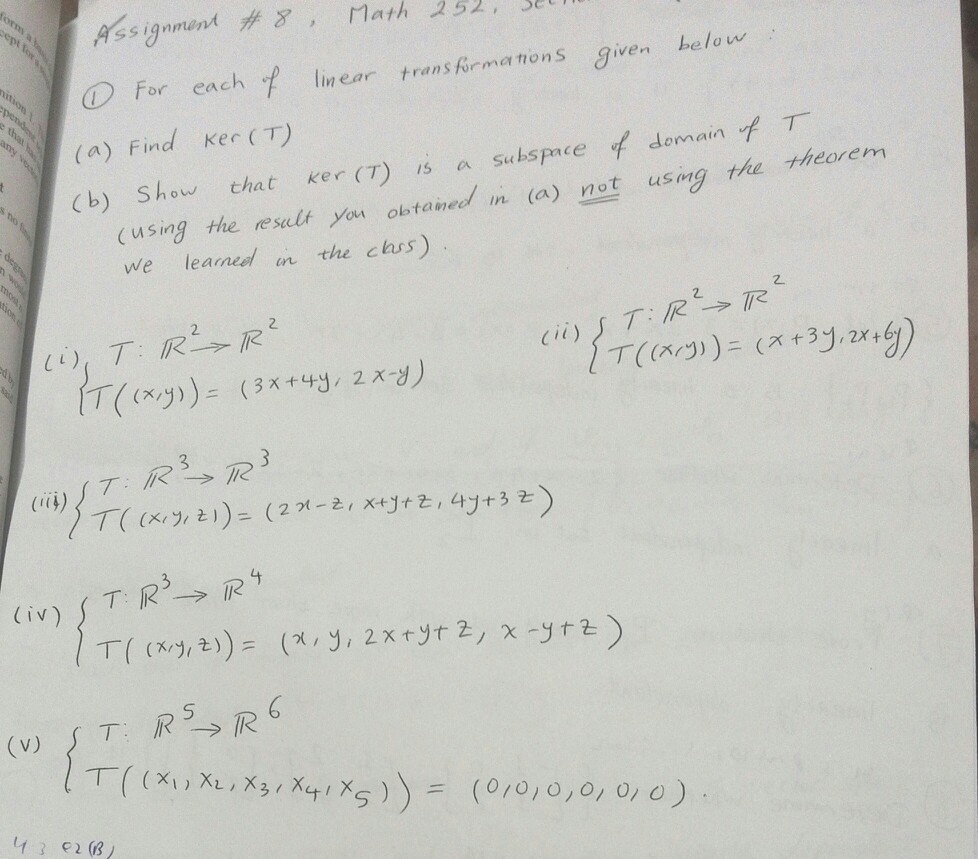 Assignment # 8, Math 252,
① For each of linear transformations given below :
(a) Find Ker(T)
(b) Show that Ker(T) is a subspace of domain of T
(using the result you obtained in (a) not using the theorem
we learned in the class).
(i) { T: ℝ² → ℝ²
T((x,y)) = (3x+4y, 2x-y)
(ii) { T: ℝ² → ℝ²
T((x,y)) = (x+3y, 2x+6y)
(iii) { T: ℝ³ → ℝ³
T((x,y,z)) = (2x-z, x+y+z, 4y+3z)
(iv) { T: ℝ³ → ℝ⁴
T((x,y,z)) = (x, y, 2x+y+z, x-y+z)
(v) { T: ℝ⁵ → ℝ⁶
T((x₁, x₂, x₃, x₄, x₅)) = (0,0,0,0,0,0).